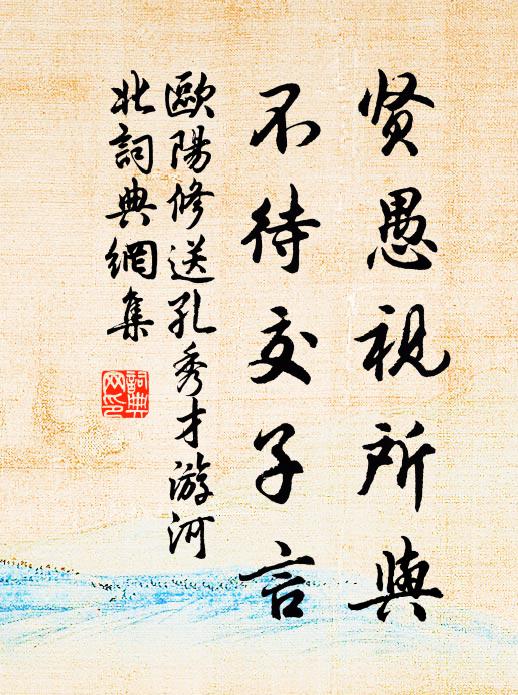 贤愚视所与
不待交子言
歐陽修送孔秀才游河
北詞典網集
詞典
网印